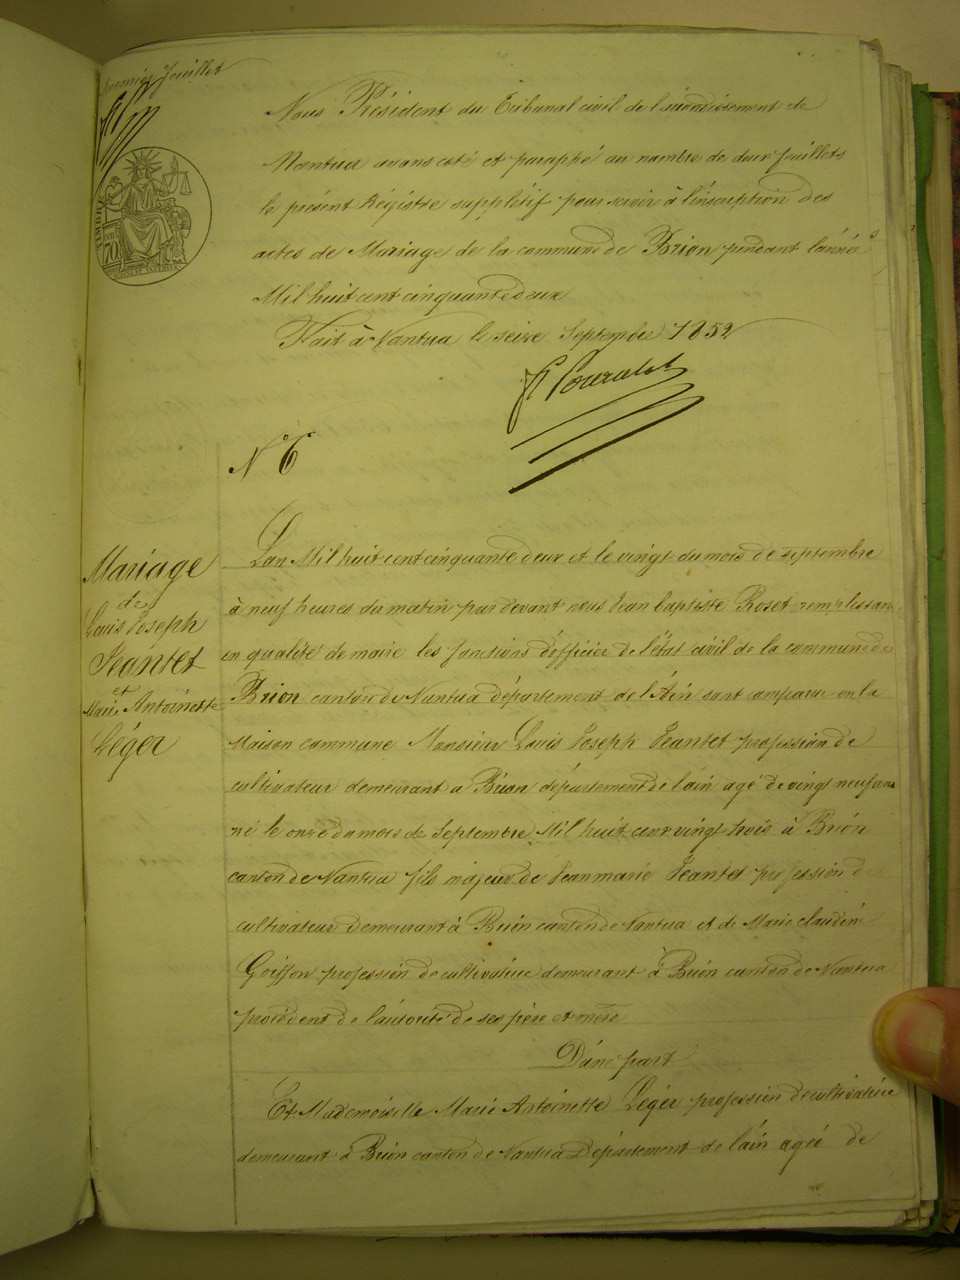 premier feuillet
Nous Président du Tribunal civil de l'arrondissement de
Nantua avons coté et paraphé au nombre de deux feuillets
le présent Régistre suppletif pour servir à l'inscription des
actes de Mariage de la commune de Brion pendant l'année
Mil huit cent cinquante deux
Fait à Nantua le seize Septembre 1852
N° 6
Mariage
de
Louis Joseph
Jeantet
et
Marie Antoinette
Léger
L'an Mil huit cent cinquante deux et le vingt du mois de septembre
à neuf heures du matin par devant nous Jean baptiste Roset remplissant
en qualité de maire les fonctions d'officier de l'état civil de la commune de
Brion canton de Nantua département de l'Ain sont comparus en la
Maison commune Monsieur Louis Joseph Jeantet profession de
cultivateur demeurant a Brion département de l'ain agé de vingt neuf ans
né le onze du mois de Septembre Mil huit cent vingt trois à Brion
canton de Nantua fils majeur de Jean marie Jeantet profession de
cultivateur demeurant à Brion canton de Nantua et de Marie claudine
Goiffon profession de cultivatrice demeurant à Brion canton de Nantua
procédent de l'autorité de ses père et mère
D'une part
Et Mademoiselle Marie Antoinette Léger profession de cultivatrice
demeurant à Brion canton de Nantua Département de l'ain agée de